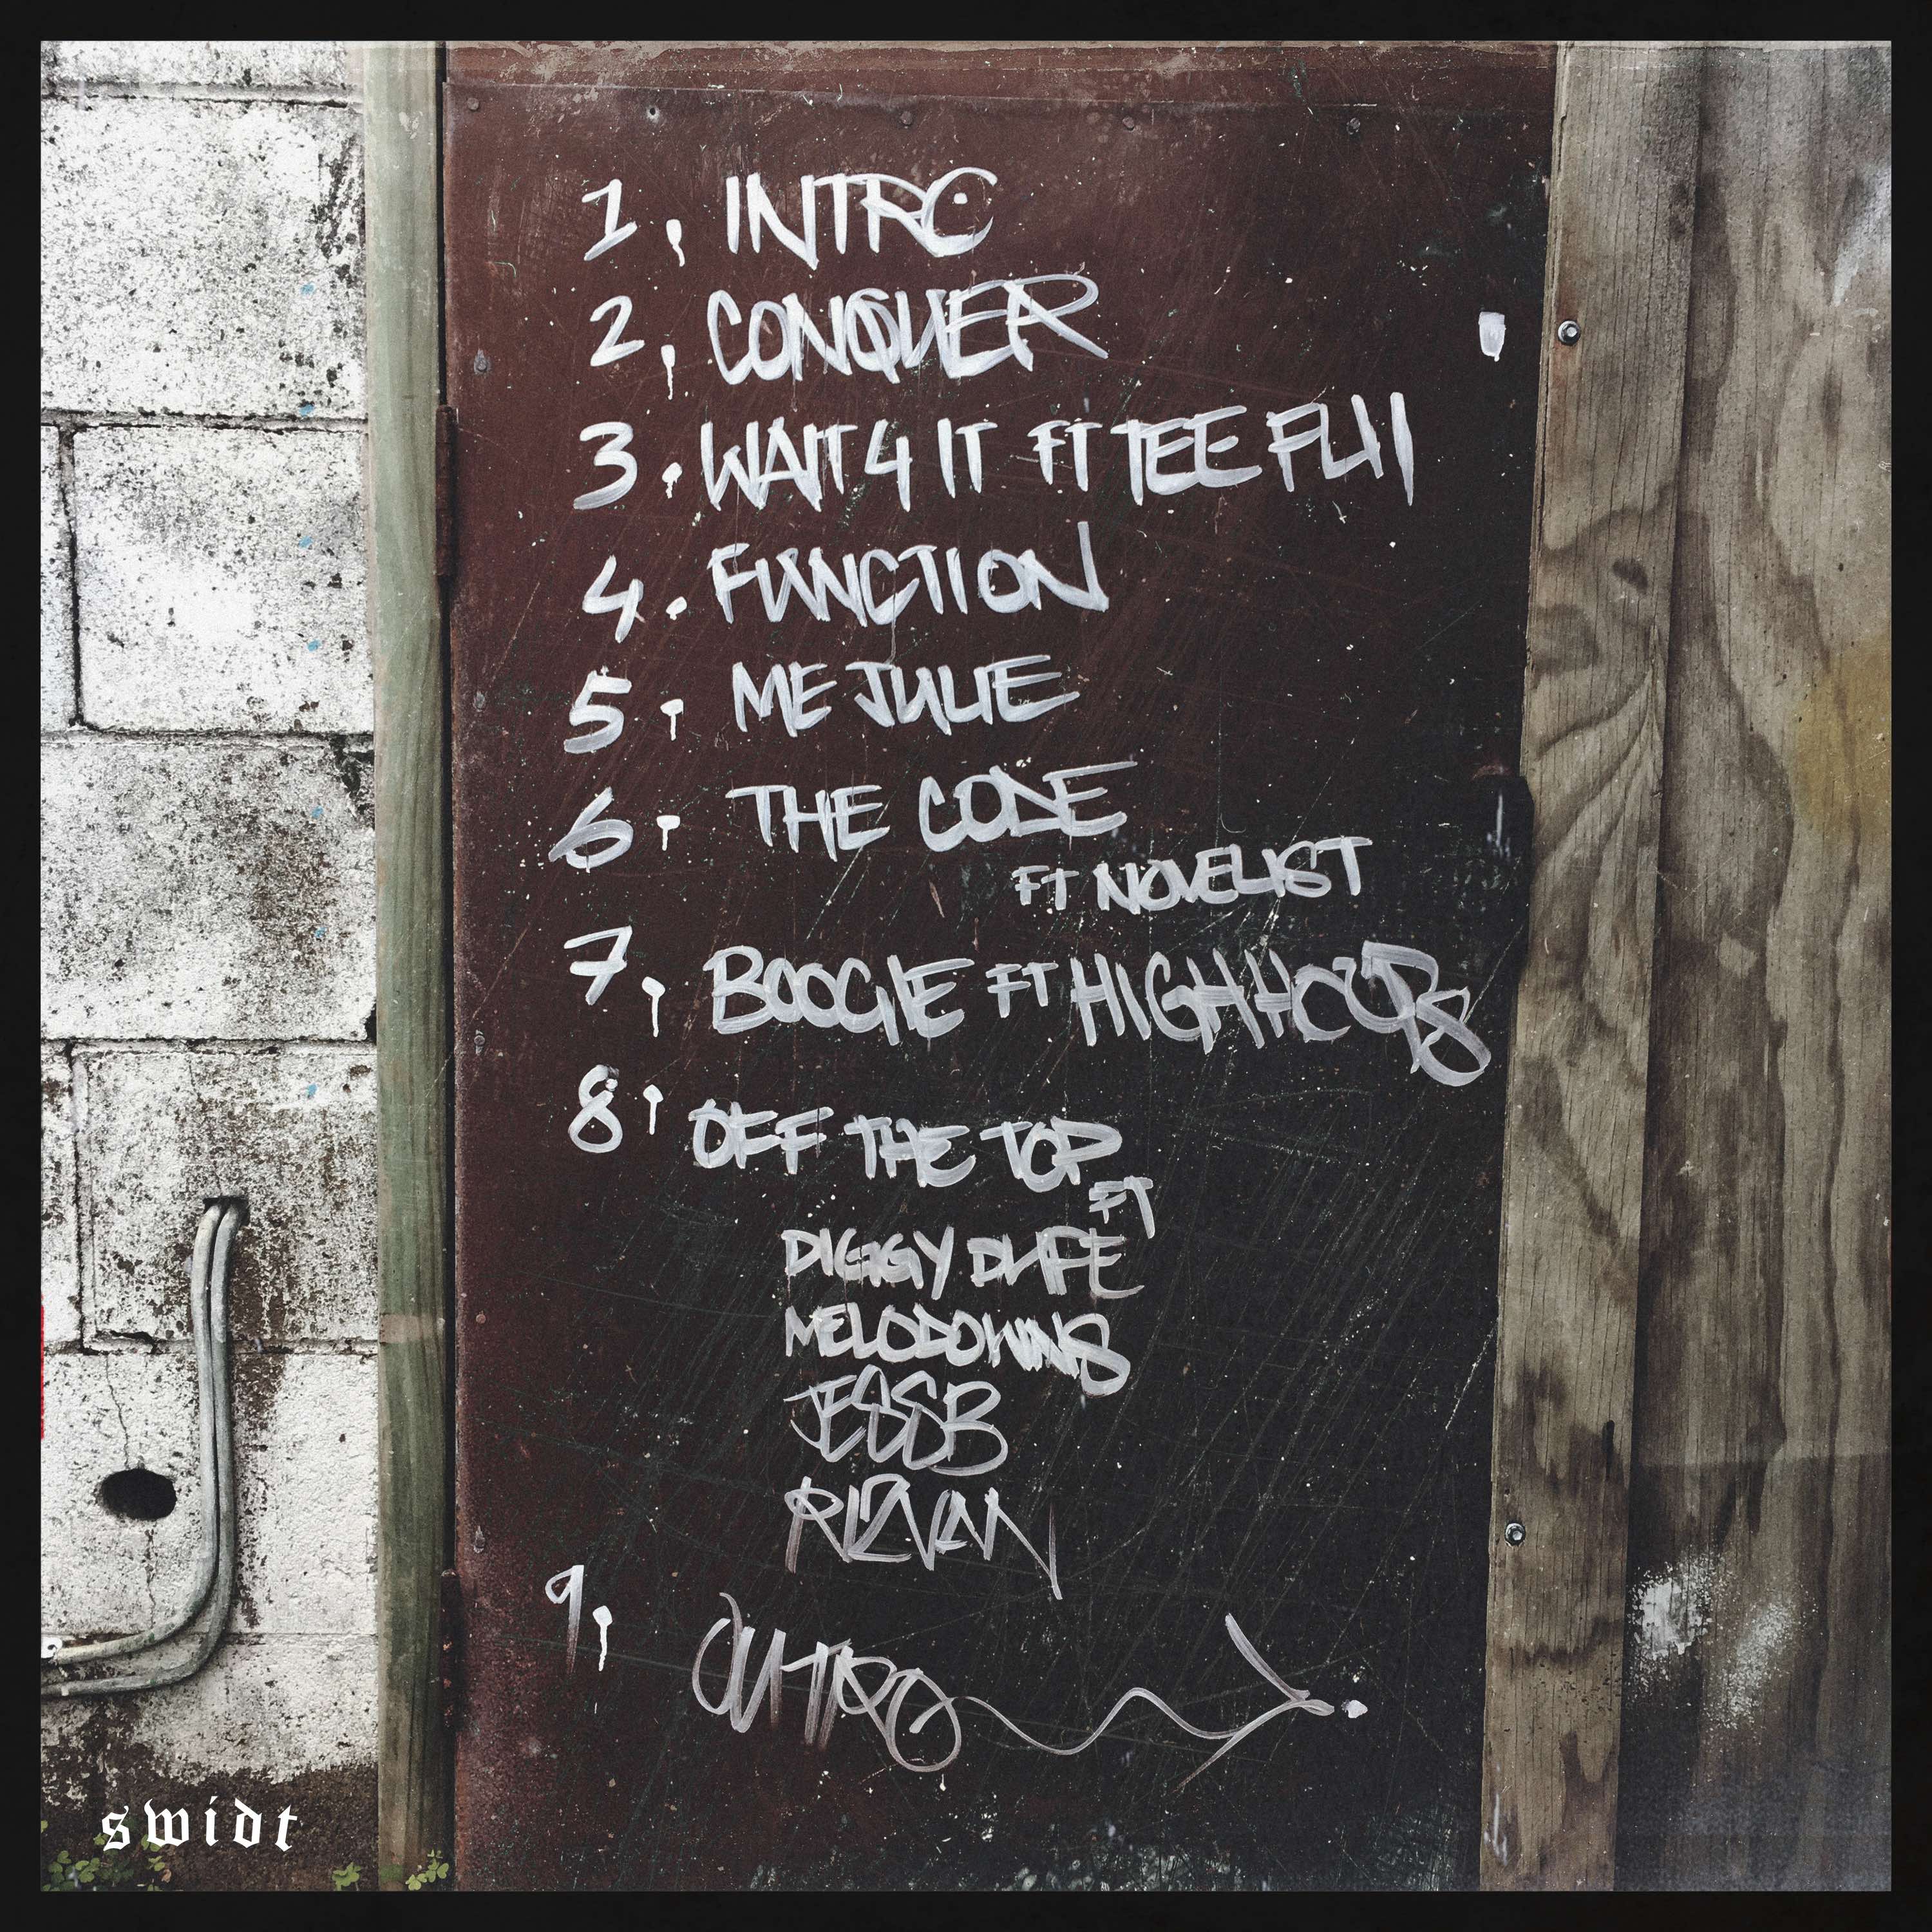 1. INTRO
2. CONQUER
3. WAIT 4 IT FT TEE FLII
4. FUNCTION
5. ME JULIE
6. THE CODE
FT NOVELIST
7. BOOGIE FT HIGH HOOPS
8. OFF THE TOP
FT
DIGGY DUPE
MELODOWNS
JESSB
RIZVAN
9. OUTRO
swidt